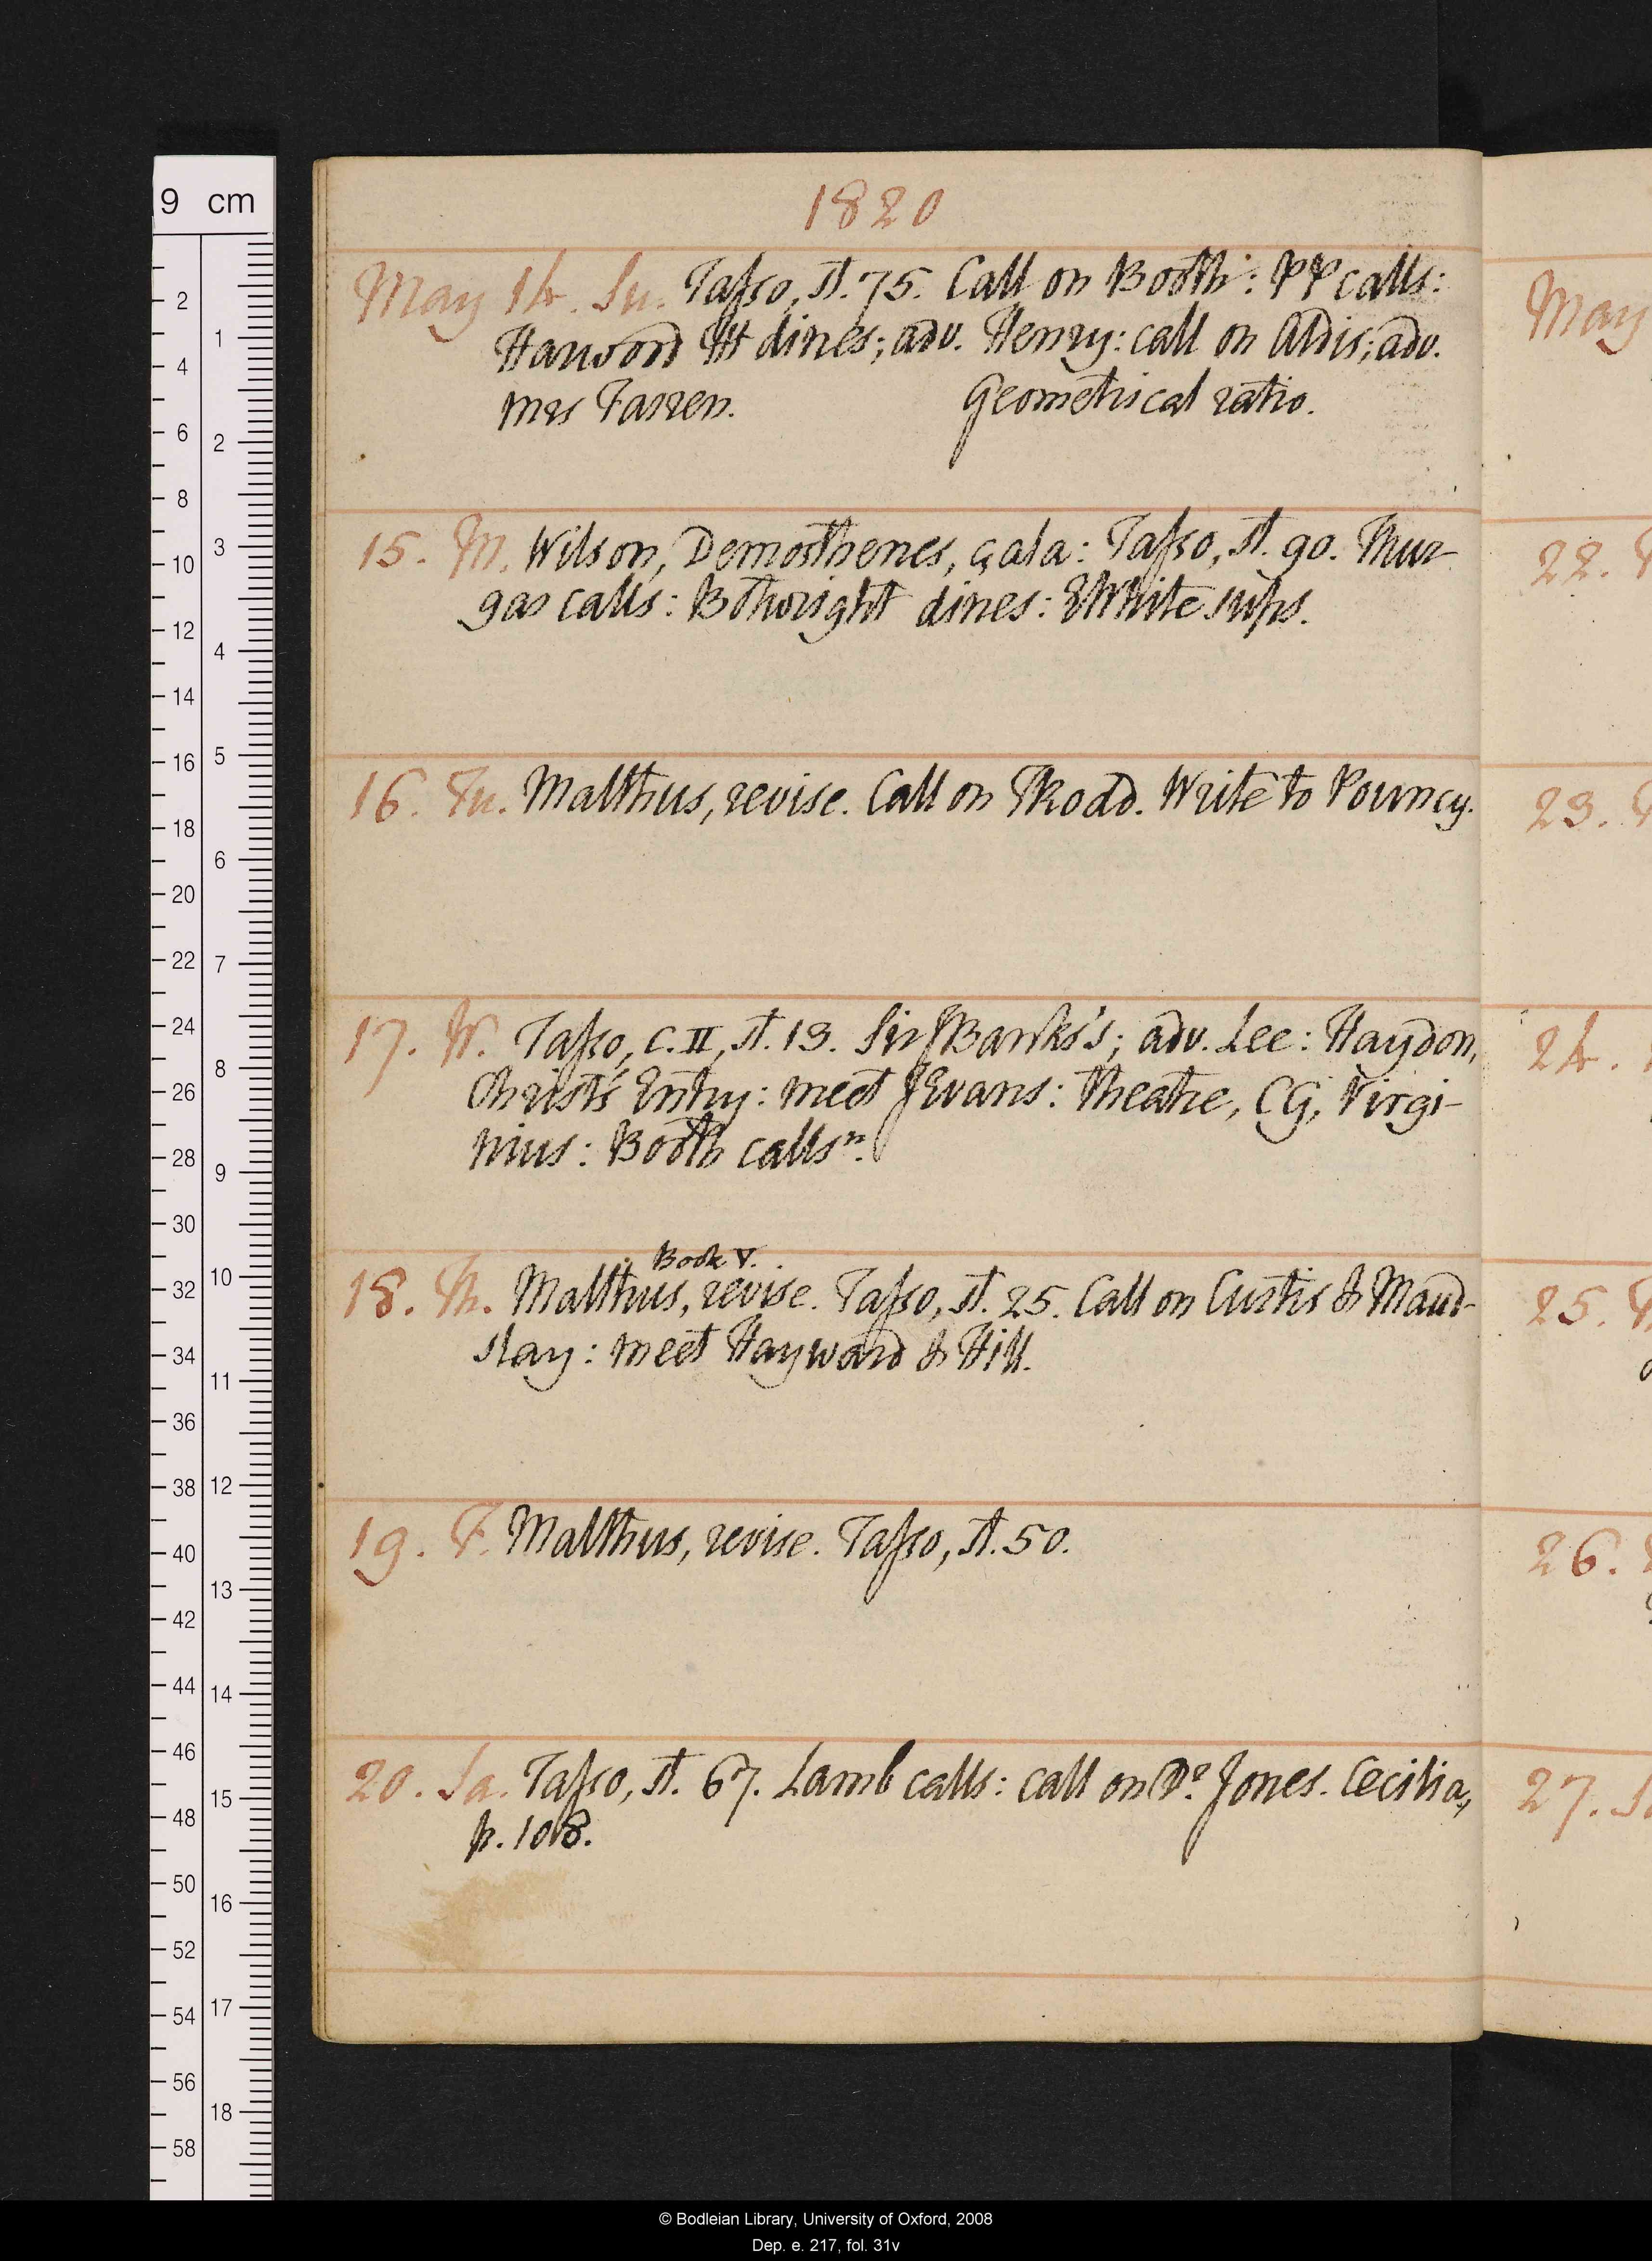 1820
May 14. Su. Tasso, st. 75. Call on Booth: PP calls:
Harwood HH dines; adv. Henry: call on Aldis; adv.
Mrs Farren. Geometrical ratio.
15. M. Wilson, Demosthenes, çala: Tasso, st. 90. Mur-
gas calls: Bothwright dines: EWhite sups.
16. Tu. Malthus, revise. Call on TRodd. Write to Pouncy.
17. W. Tasso, c. II, st. 13. Sir JBanks's; adv. Lee: Haydon,
Christ's Entry: meet JEvans: Theatre, CG, Virgi-
nius: Booth calls n.
Book V.
18. Th. Malthus, revise. Tasso, st. 25. Call on Custis & Maud-
slay: meet Hayward & Hill.
19. F. Malthus, revise. Tasso, st. 50.
20. Sa. Tasso, st. 67. Lamb calls: call on Dr. Jones. Cecilia,
p. 108.
May
22.
23.
24.
25.
26.
27. Sa
9 cm
2
4
6
8
10
12
14
16
18
20
22
24
26
28
30
32
34
36
38
40
42
44
46
48
50
52
54
56
58
1
2
3
4
5
6
7
8
9
10
11
12
13
14
15
16
17
18
© Bodleian Library, University of Oxford, 2008
Dep. e. 217, fol. 31v